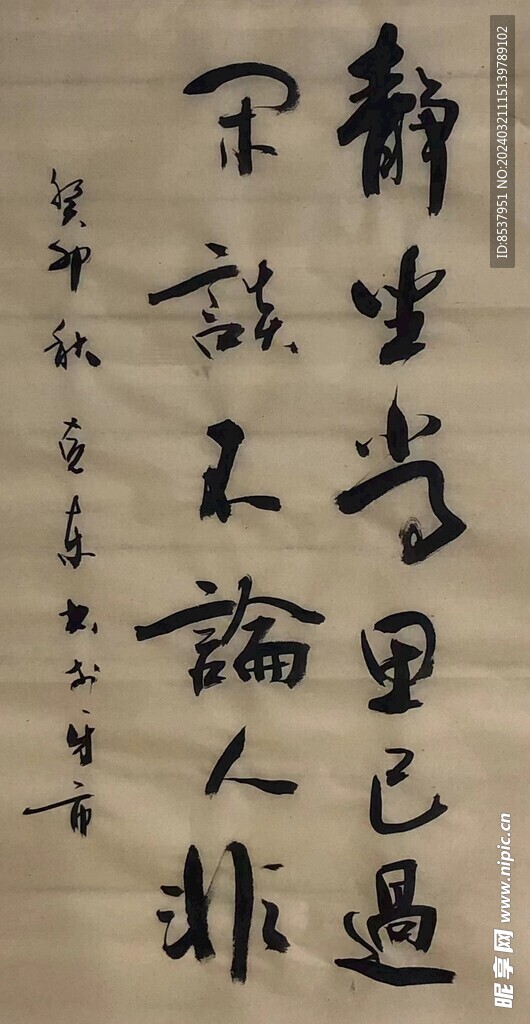 靜坐常思己過
閑談不論人非
癸卯秋 克東书於
ID:8537951 NO:20240321115139789102
昵享网 www.nipic.cn